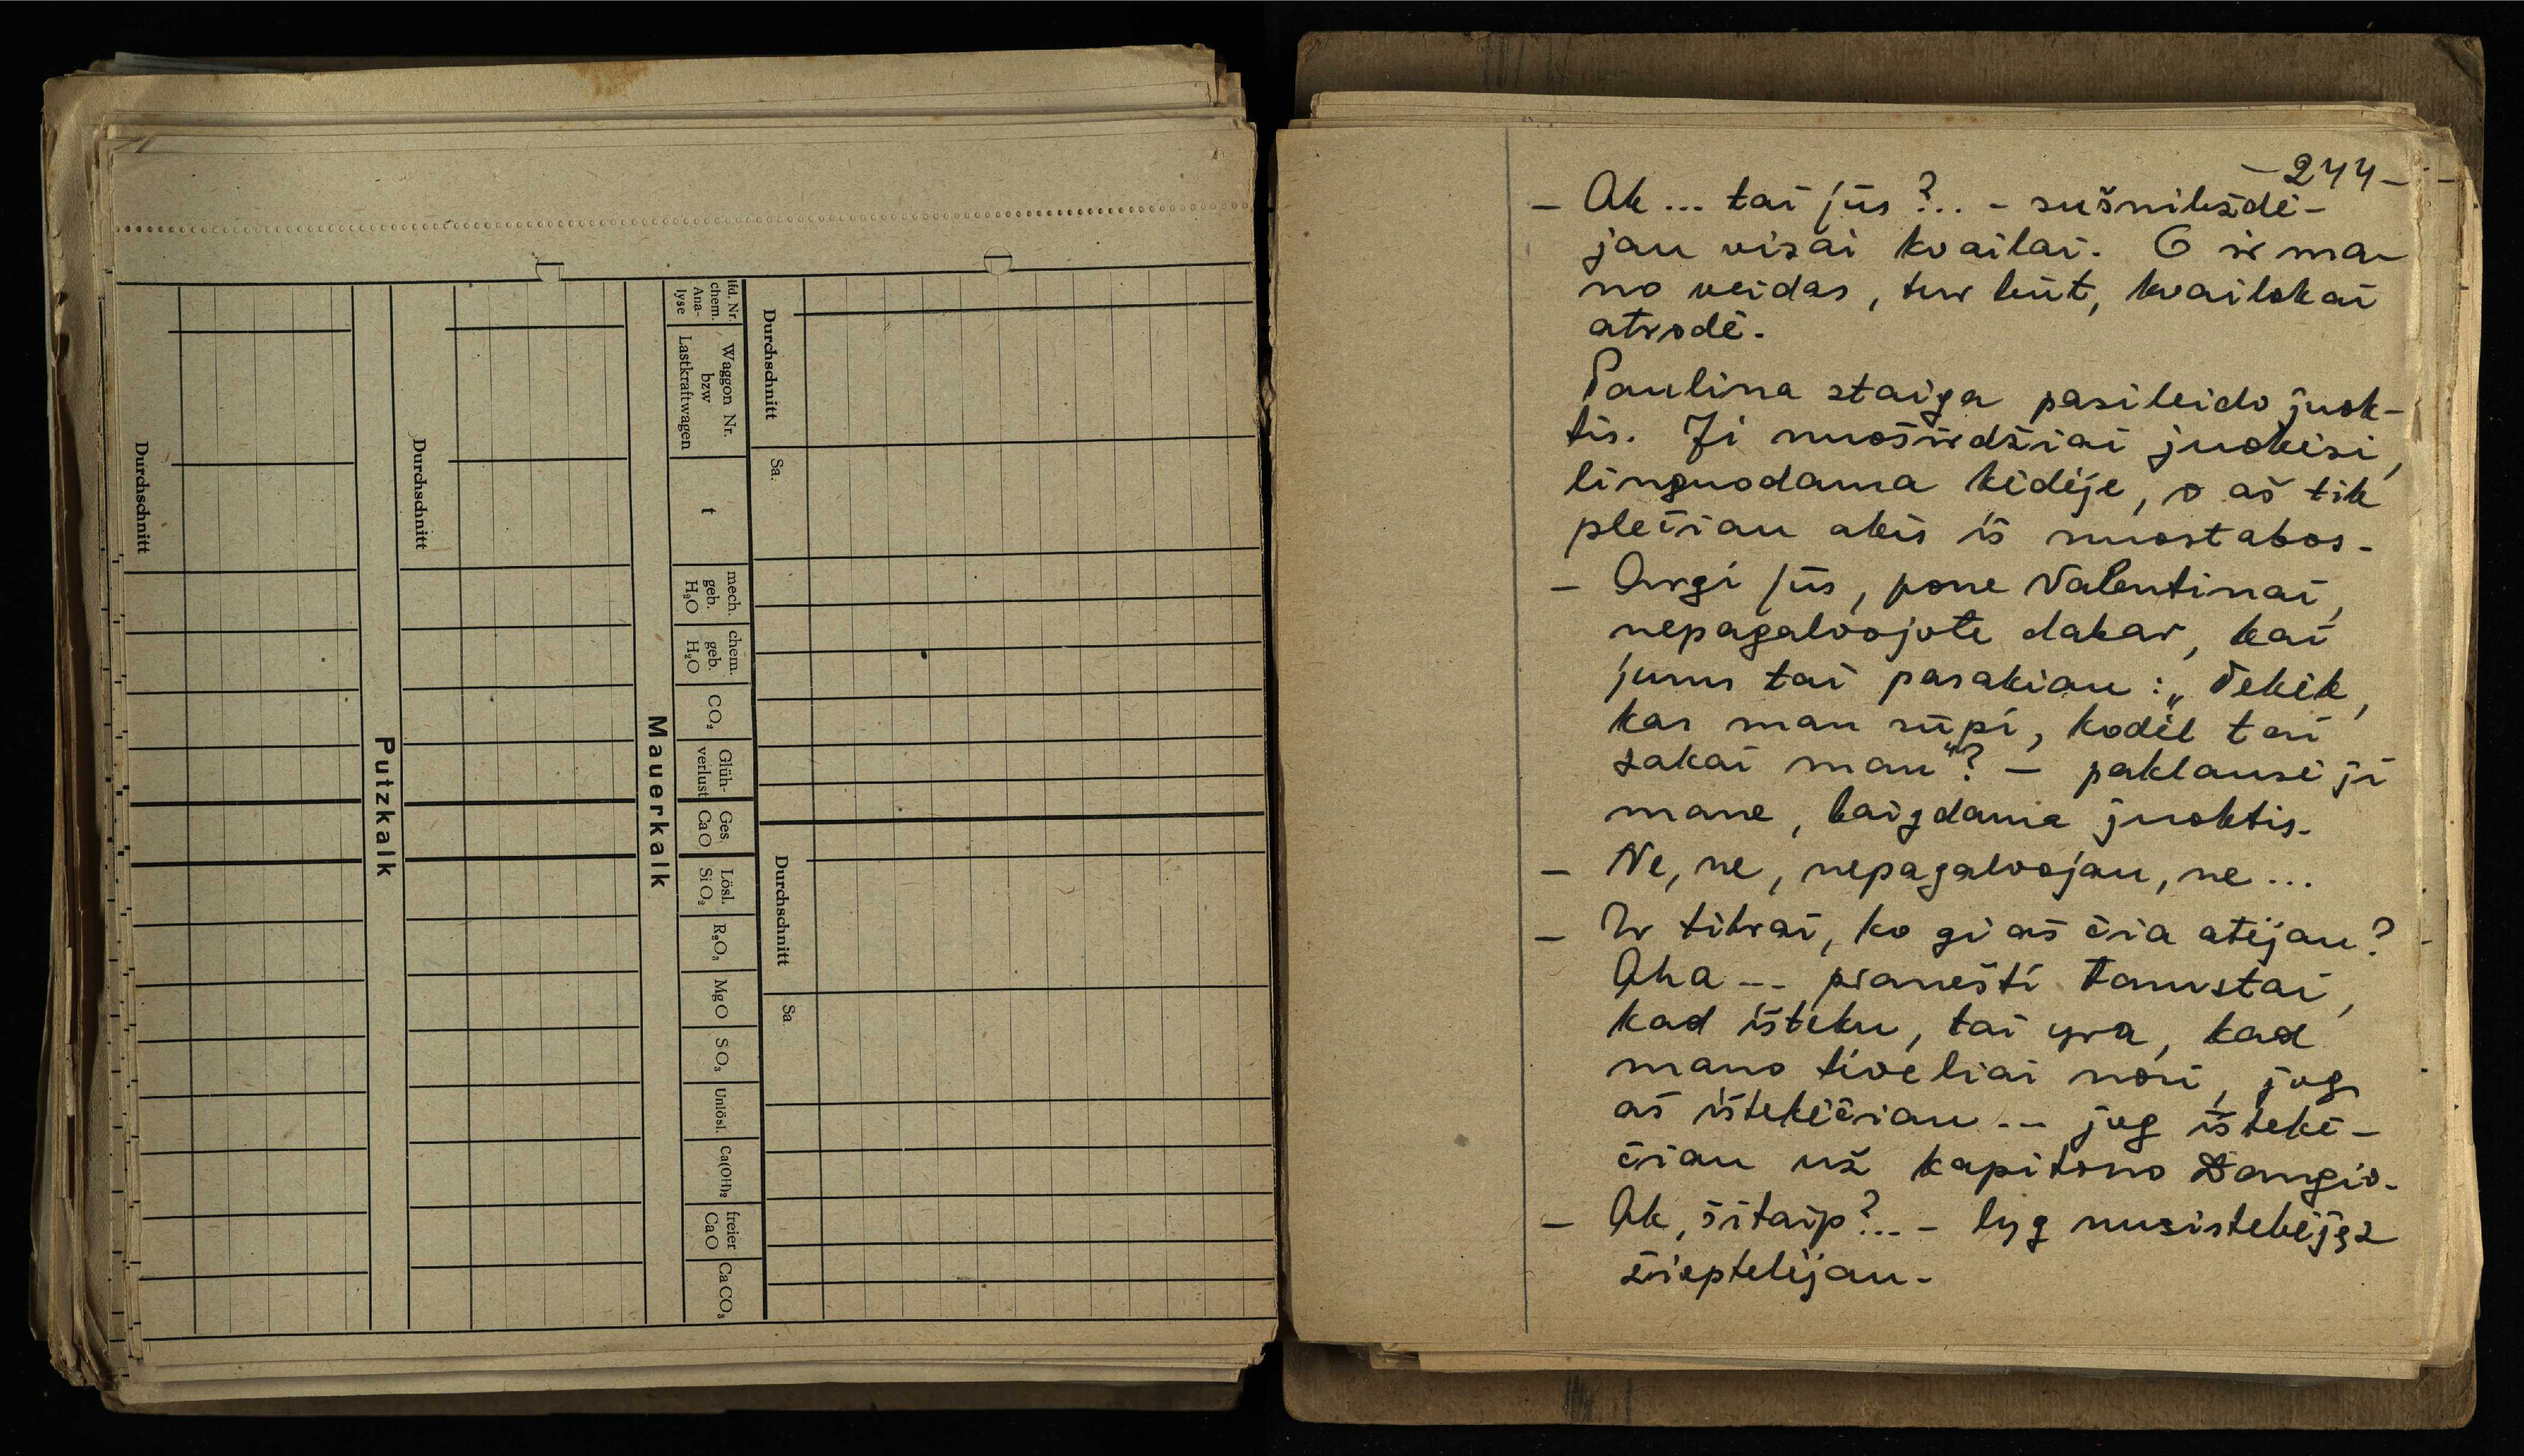 Durchschnitt
Putzkalk
Durchschnitt
Mauerkalk
lfd. Nr.
chem.
Ana-
lyse
Waggon Nr.
bzw
Lastkraftwagen
t
mech.
geb.
H₂O
chem.
geb.
H₂O
CO₂
Glüh-
verlust
Ges.
CaO
Lösl.
SiO₂
R₂O₃
MgO
SO₃
Unlösl.
Ca(OH)₂
freier
CaO
CaCO₃
Durchschnitt
Sa.
Durchschnitt
Sa
-244-
- Ak... tai jūs?.. - sušnibždė-
jau visai kvailai. O ir ma-
no veidas, tur būt, kvailokai
atrodė.
Paulina staiga pasileido juok-
tis. Ji nuoširdžiai juokėsi,
linguodama kėdėje, o aš tik
plečiau akis iš nuostabos.
- Argi jūs, pone Valentinai,
nepagalvojote dabar, kai
jums tai pasakiau: „Tekėk,
kas man rūpi, kodėl tai
sakai man"? - paklausė ji
mane, baigdama juoktis.
- Ne, ne, nepagalvojau, ne...
- Ir tikrai, ko gi aš čia atėjau?
Aha... pranešti Tamstai,
kad išteku, tai yra, kad
mano tėveliai nori, jog
aš ištekėčiau... jog ištekė-
čiau už kapitono Dangio.
- Ak, šitaip?... - lyg nusistebėjęs
šieptelėjau.